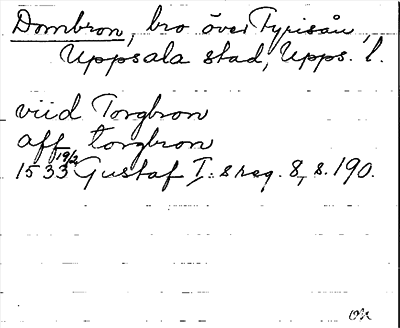 Dombron, bro över Fyrisån,
Uppsala stad, Upps. l.
viid Torgbron
aff torgbron
1533 19/2 Gustaf I:s reg. 8, s. 190.